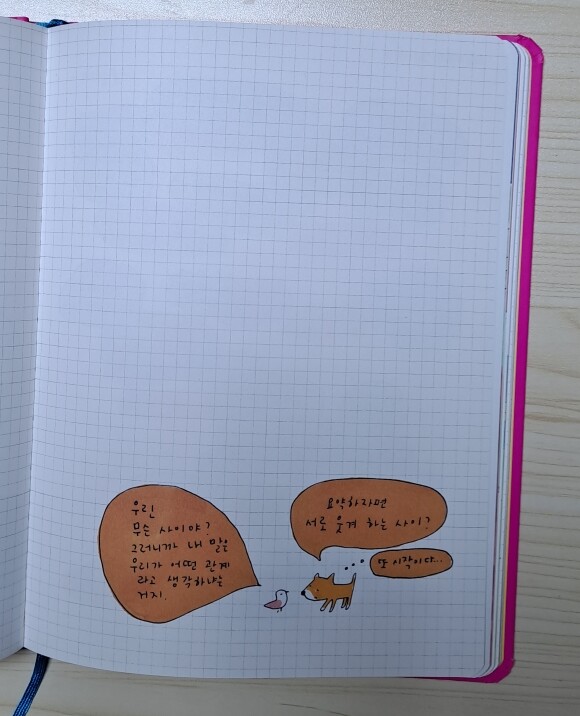 우린
무슨 사이야?
그러니까 내 말은
우리가 어떤 관계
라고 생각하냐는
거지.
요약하라면
서로 웃겨 하는 사이?
또 시작이다...